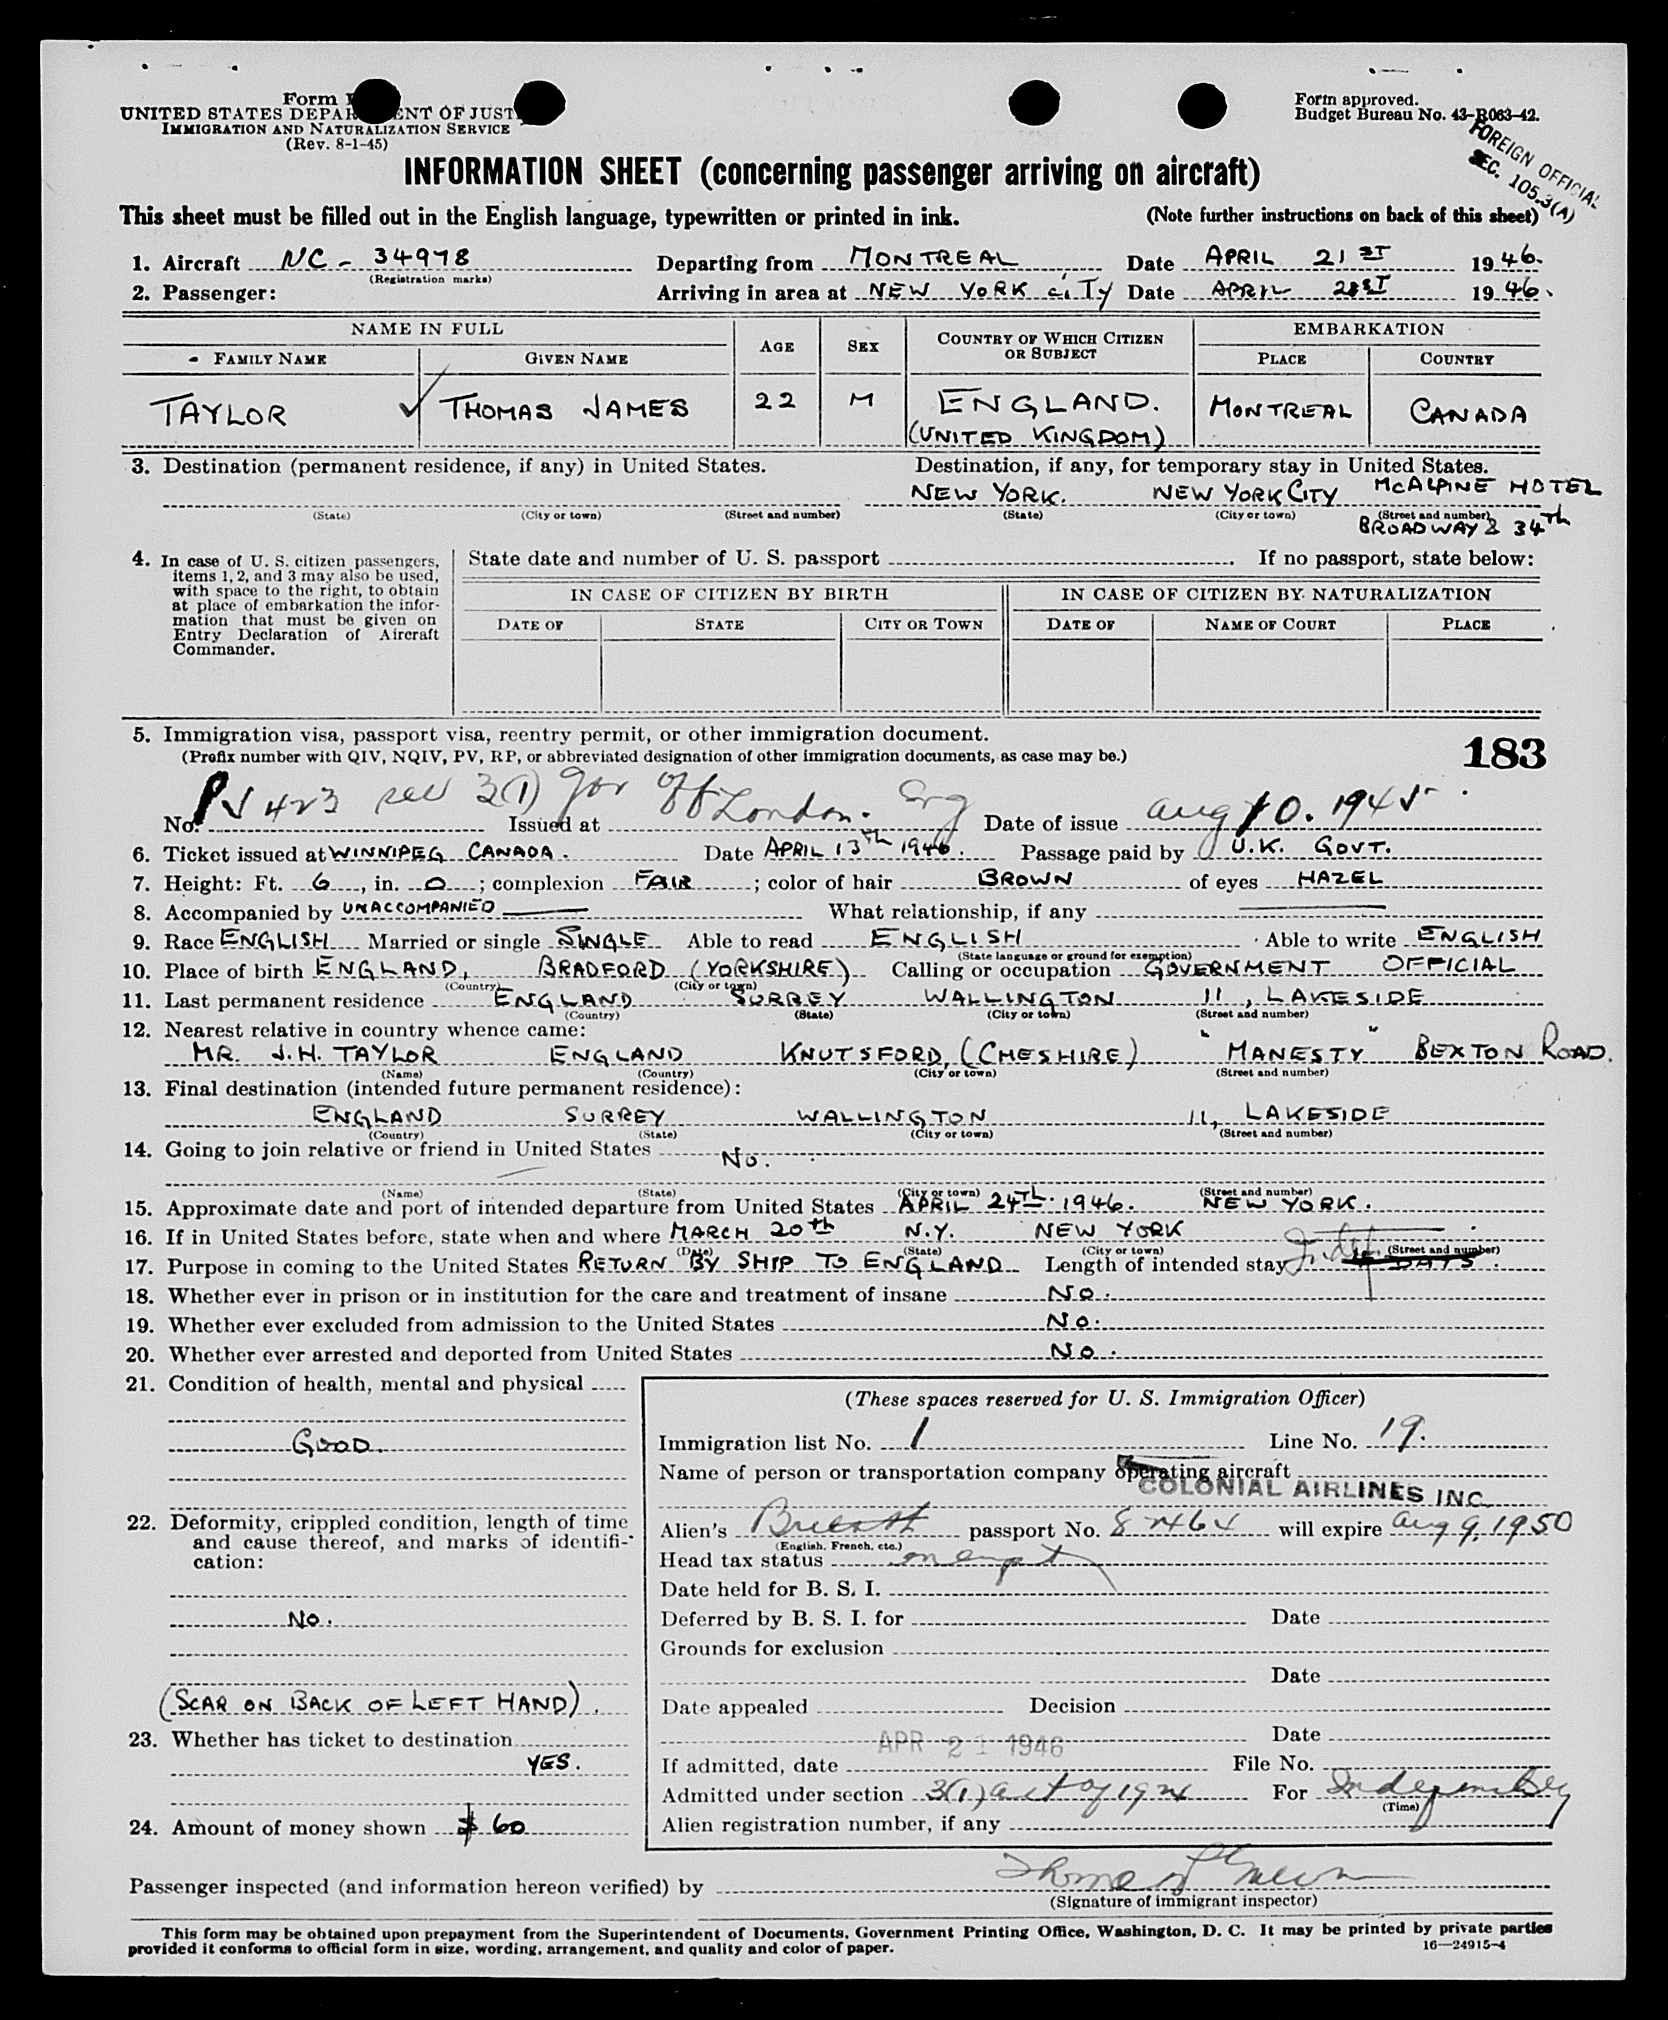 Form
UNITED STATES DEPARTMENT OF JUSTICE
IMMIGRATION AND NATURALIZATION SERVICE
(Rev. 8-1-45)
Form approved.
Budget Bureau No. 43-R063-42.
FOREIGN OFFICIAL
SEC. 105.3(A)
INFORMATION SHEET (concerning passenger arriving on aircraft)
This sheet must be filled out in the English language, typewritten or printed in ink. (Note further instructions on back of this sheet)
1. Aircraft NC - 34978 Departing from MONTREAL Date APRIL 21ST 1946.
(Registration marks)
2. Passenger: Arriving in area at NEW YORK CITY Date APRIL 21ST 1946.
NAME IN FULL AGE SEX COUNTRY OF WHICH CITIZEN OR SUBJECT EMBARKATION
FAMILY NAME GIVEN NAME PLACE COUNTRY
TAYLOR ✓ THOMAS JAMES 22 M ENGLAND. MONTREAL CANADA
(UNITED KINGDOM)
3. Destination (permanent residence, if any) in United States. Destination, if any, for temporary stay in United States.
NEW YORK. NEW YORK CITY McALPINE HOTEL
(State) (City or town) (Street and number) (State) (City or town) (Street and number)
BROADWAY & 34th
4. In case of U. S. citizen passengers, items 1, 2, and 3 may also be used, with space to the right, to obtain at place of embarkation the information that must be given on Entry Declaration of Aircraft Commander.
State date and number of U. S. passport If no passport, state below:
IN CASE OF CITIZEN BY BIRTH IN CASE OF CITIZEN BY NATURALIZATION
DATE OF STATE CITY OR TOWN DATE OF NAME OF COURT PLACE
5. Immigration visa, passport visa, reentry permit, or other immigration document.
(Prefix number with QIV, NQIV, PV, RP, or abbreviated designation of other immigration documents, as case may be.)
183
No. PV 423 sec 3(1) gov off Issued at London. Eng Date of issue Aug 10. 1945
6. Ticket issued at WINNIPEG CANADA. Date APRIL 13th 1946. Passage paid by U.K. GOVT.
7. Height: Ft. 6, in. 0; complexion FAIR; color of hair BROWN of eyes HAZEL
8. Accompanied by UNACCOMPANIED What relationship, if any
9. Race ENGLISH Married or single SINGLE Able to read ENGLISH Able to write ENGLISH
(State language or ground for exemption)
10. Place of birth ENGLAND, BRADFORD (YORKSHIRE) Calling or occupation GOVERNMENT OFFICIAL
(Country) (City or town)
11. Last permanent residence ENGLAND SURREY WALLINGTON 11, LAKESIDE
(Country) (State) (City or town) (Street and number)
12. Nearest relative in country whence came:
MR. J.H. TAYLOR ENGLAND KNUTSFORD, (CHESHIRE) "MANESTY" BEXTON ROAD.
(Name) (Country) (City or town) (Street and number)
13. Final destination (intended future permanent residence):
ENGLAND SURREY WALLINGTON 11, LAKESIDE
(Country) (State) (City or town) (Street and number)
14. Going to join relative or friend in United States No.
(Name) (State) (City or town) (Street and number)
15. Approximate date and port of intended departure from United States APRIL 24TH. 1946. NEW YORK.
16. If in United States before, state when and where MARCH 20th N.Y. NEW YORK
(Date) (State) (City or town) (Street and number)
17. Purpose in coming to the United States RETURN BY SHIP TO ENGLAND Length of intended stay DAYS.
18. Whether ever in prison or in institution for the care and treatment of insane No.
19. Whether ever excluded from admission to the United States No.
20. Whether ever arrested and deported from United States No.
21. Condition of health, mental and physical
GOOD.
22. Deformity, crippled condition, length of time and cause thereof, and marks of identification:
No.
(SCAR ON BACK OF LEFT HAND).
23. Whether has ticket to destination
YES.
24. Amount of money shown $ 60
(These spaces reserved for U. S. Immigration Officer)
Immigration list No. 1 Line No. 19.
Name of person or transportation company operating aircraft
COLONIAL AIRLINES INC
Alien's British passport No. will expire Aug 9, 1950
(English, French, etc.)
Head tax status exempt
Date held for B. S. I.
Deferred by B. S. I. for Date
Grounds for exclusion
Date
Date appealed Decision
APR 21 1946 Date
If admitted, date File No.
Admitted under section 3(1) act of 1924 For Indefinitely
(Time)
Alien registration number, if any
Passenger inspected (and information hereon verified) by
(Signature of immigrant inspector)
This form may be obtained upon prepayment from the Superintendent of Documents, Government Printing Office, Washington, D. C. It may be printed by private parties
provided it conforms to official form in size, wording, arrangement, and quality and color of paper. 16—24915-4